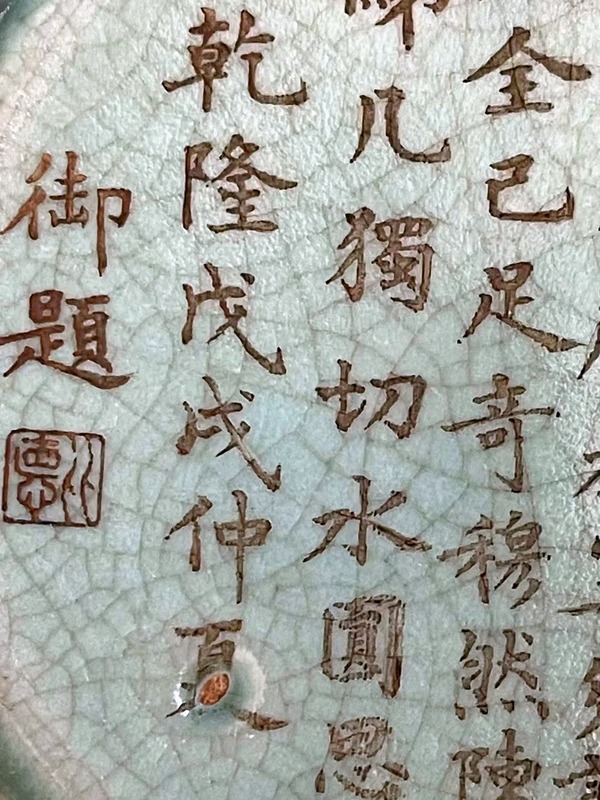 全己足奇穆然陳
几獨切水圓思
乾隆戊戌仲夏
御題
比德